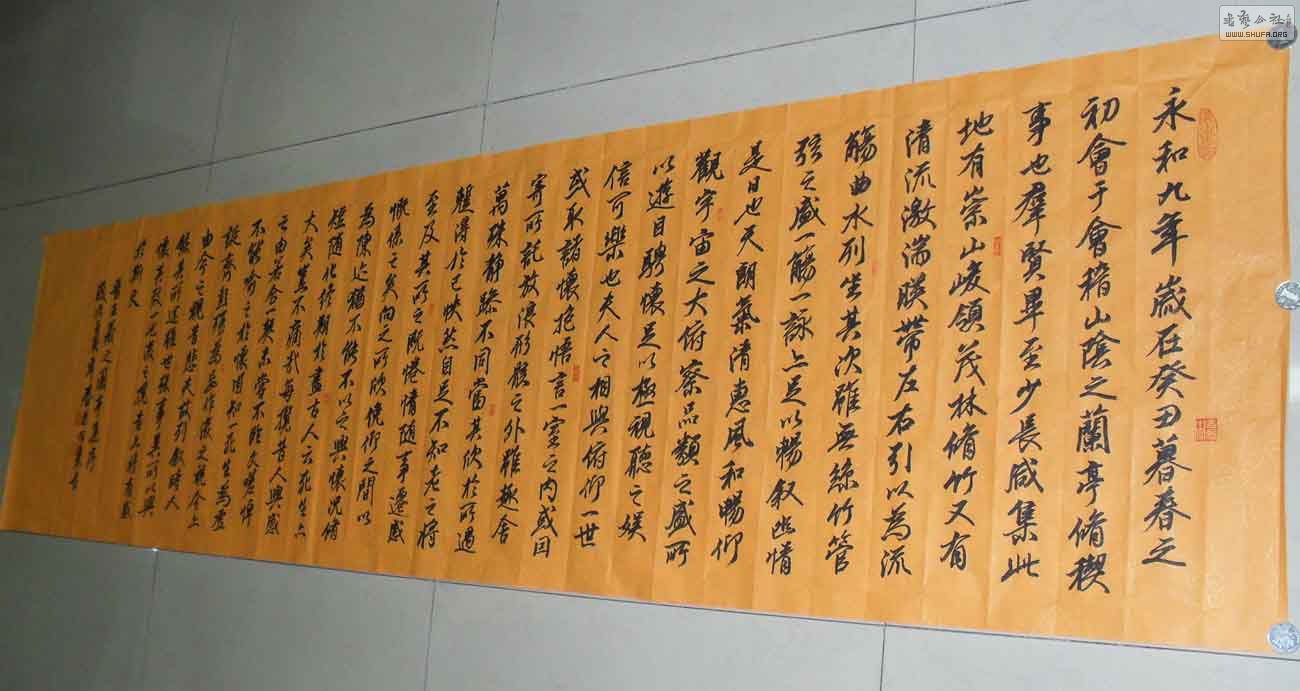 永和九年歲在癸丑暮春之
初會于會稽山陰之蘭亭脩稧
事也羣賢畢至少長咸集此
地有崇山峻領茂林脩竹又有
清流激湍暎帶左右引以為流
觴曲水列坐其次雖無絲竹管
弦之盛一觴一詠亦足以暢叙幽情
是日也天朗氣清惠風和暢仰
觀宇宙之大俯察品類之盛所
以遊目騁懷足以極視聽之娛
信可樂也夫人之相與俯仰一世
或取諸懷抱悟言一室之內或因
寄所託放浪形骸之外雖趣舍
萬殊靜躁不同當其欣於所遇
蹔得於己怏然自足不知老之將
至及其所之既惓情隨事遷感
慨係之矣向之所欣俛仰之間以
為陳迹猶不能不以之興懷況脩
短隨化終期於盡古人云死生亦
大矣豈不痛哉每攬昔人興感
之由若合一契未嘗不臨文嗟悼
不能喻之於懷固知一死生為虛
誕齊彭殤為妄作後之視今亦
由今之視昔悲夫故列敘時人
錄其所述雖世殊事異所以興
懷其致一也後之攬者亦將有感
於斯文
晉王羲之蘭亭集序
書藝公社
WWW.SHUFA.ORG